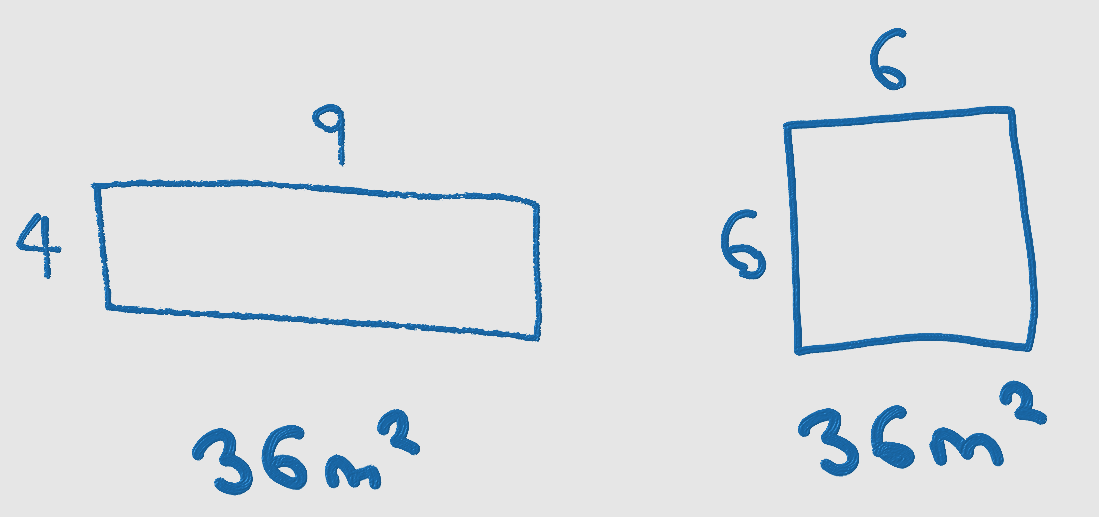 9
4
36m²
6
6
36m²